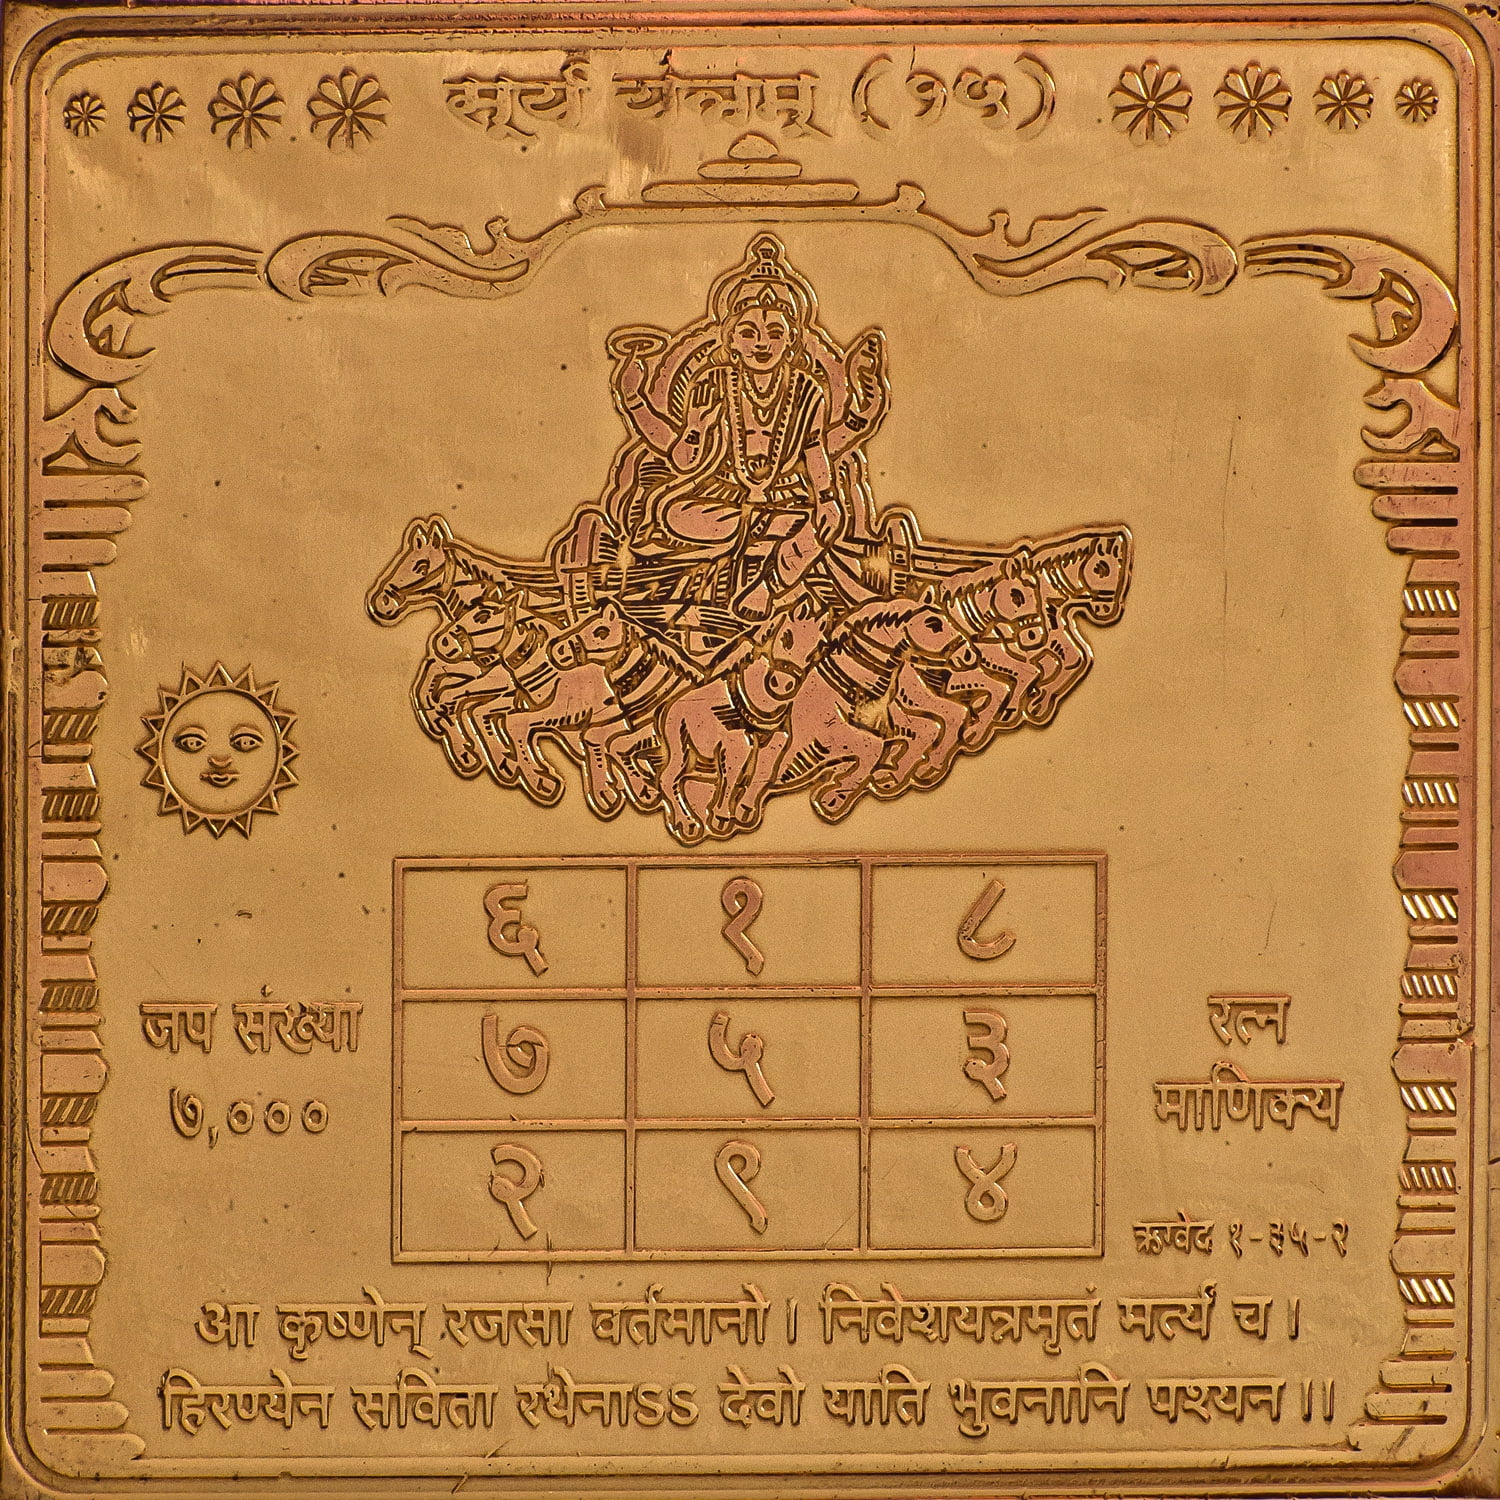 सूर्य यंत्रम् (१५)
६ १ ८
७ ५ ३
२ ९ ४
जप संख्या
७,०००
रत्न
माणिक्य
ऋग्वेद १-३५-२
आ कृष्णेन् रजसा वर्तमानो। निवेशयन्नमृतं मर्त्यं च।
हिरण्येन सविता रथेनाSS देवो याति भुवनानि पश्यन॥